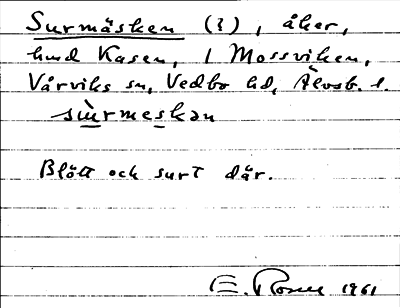 Surmäsken (?), åker,
hmd Kasen, 1 Mossviken,
Vårviks sn, Vedbo hd, Älvsb. l.
sùrmeskan
Blött och surt där.
E. Rosell 1961